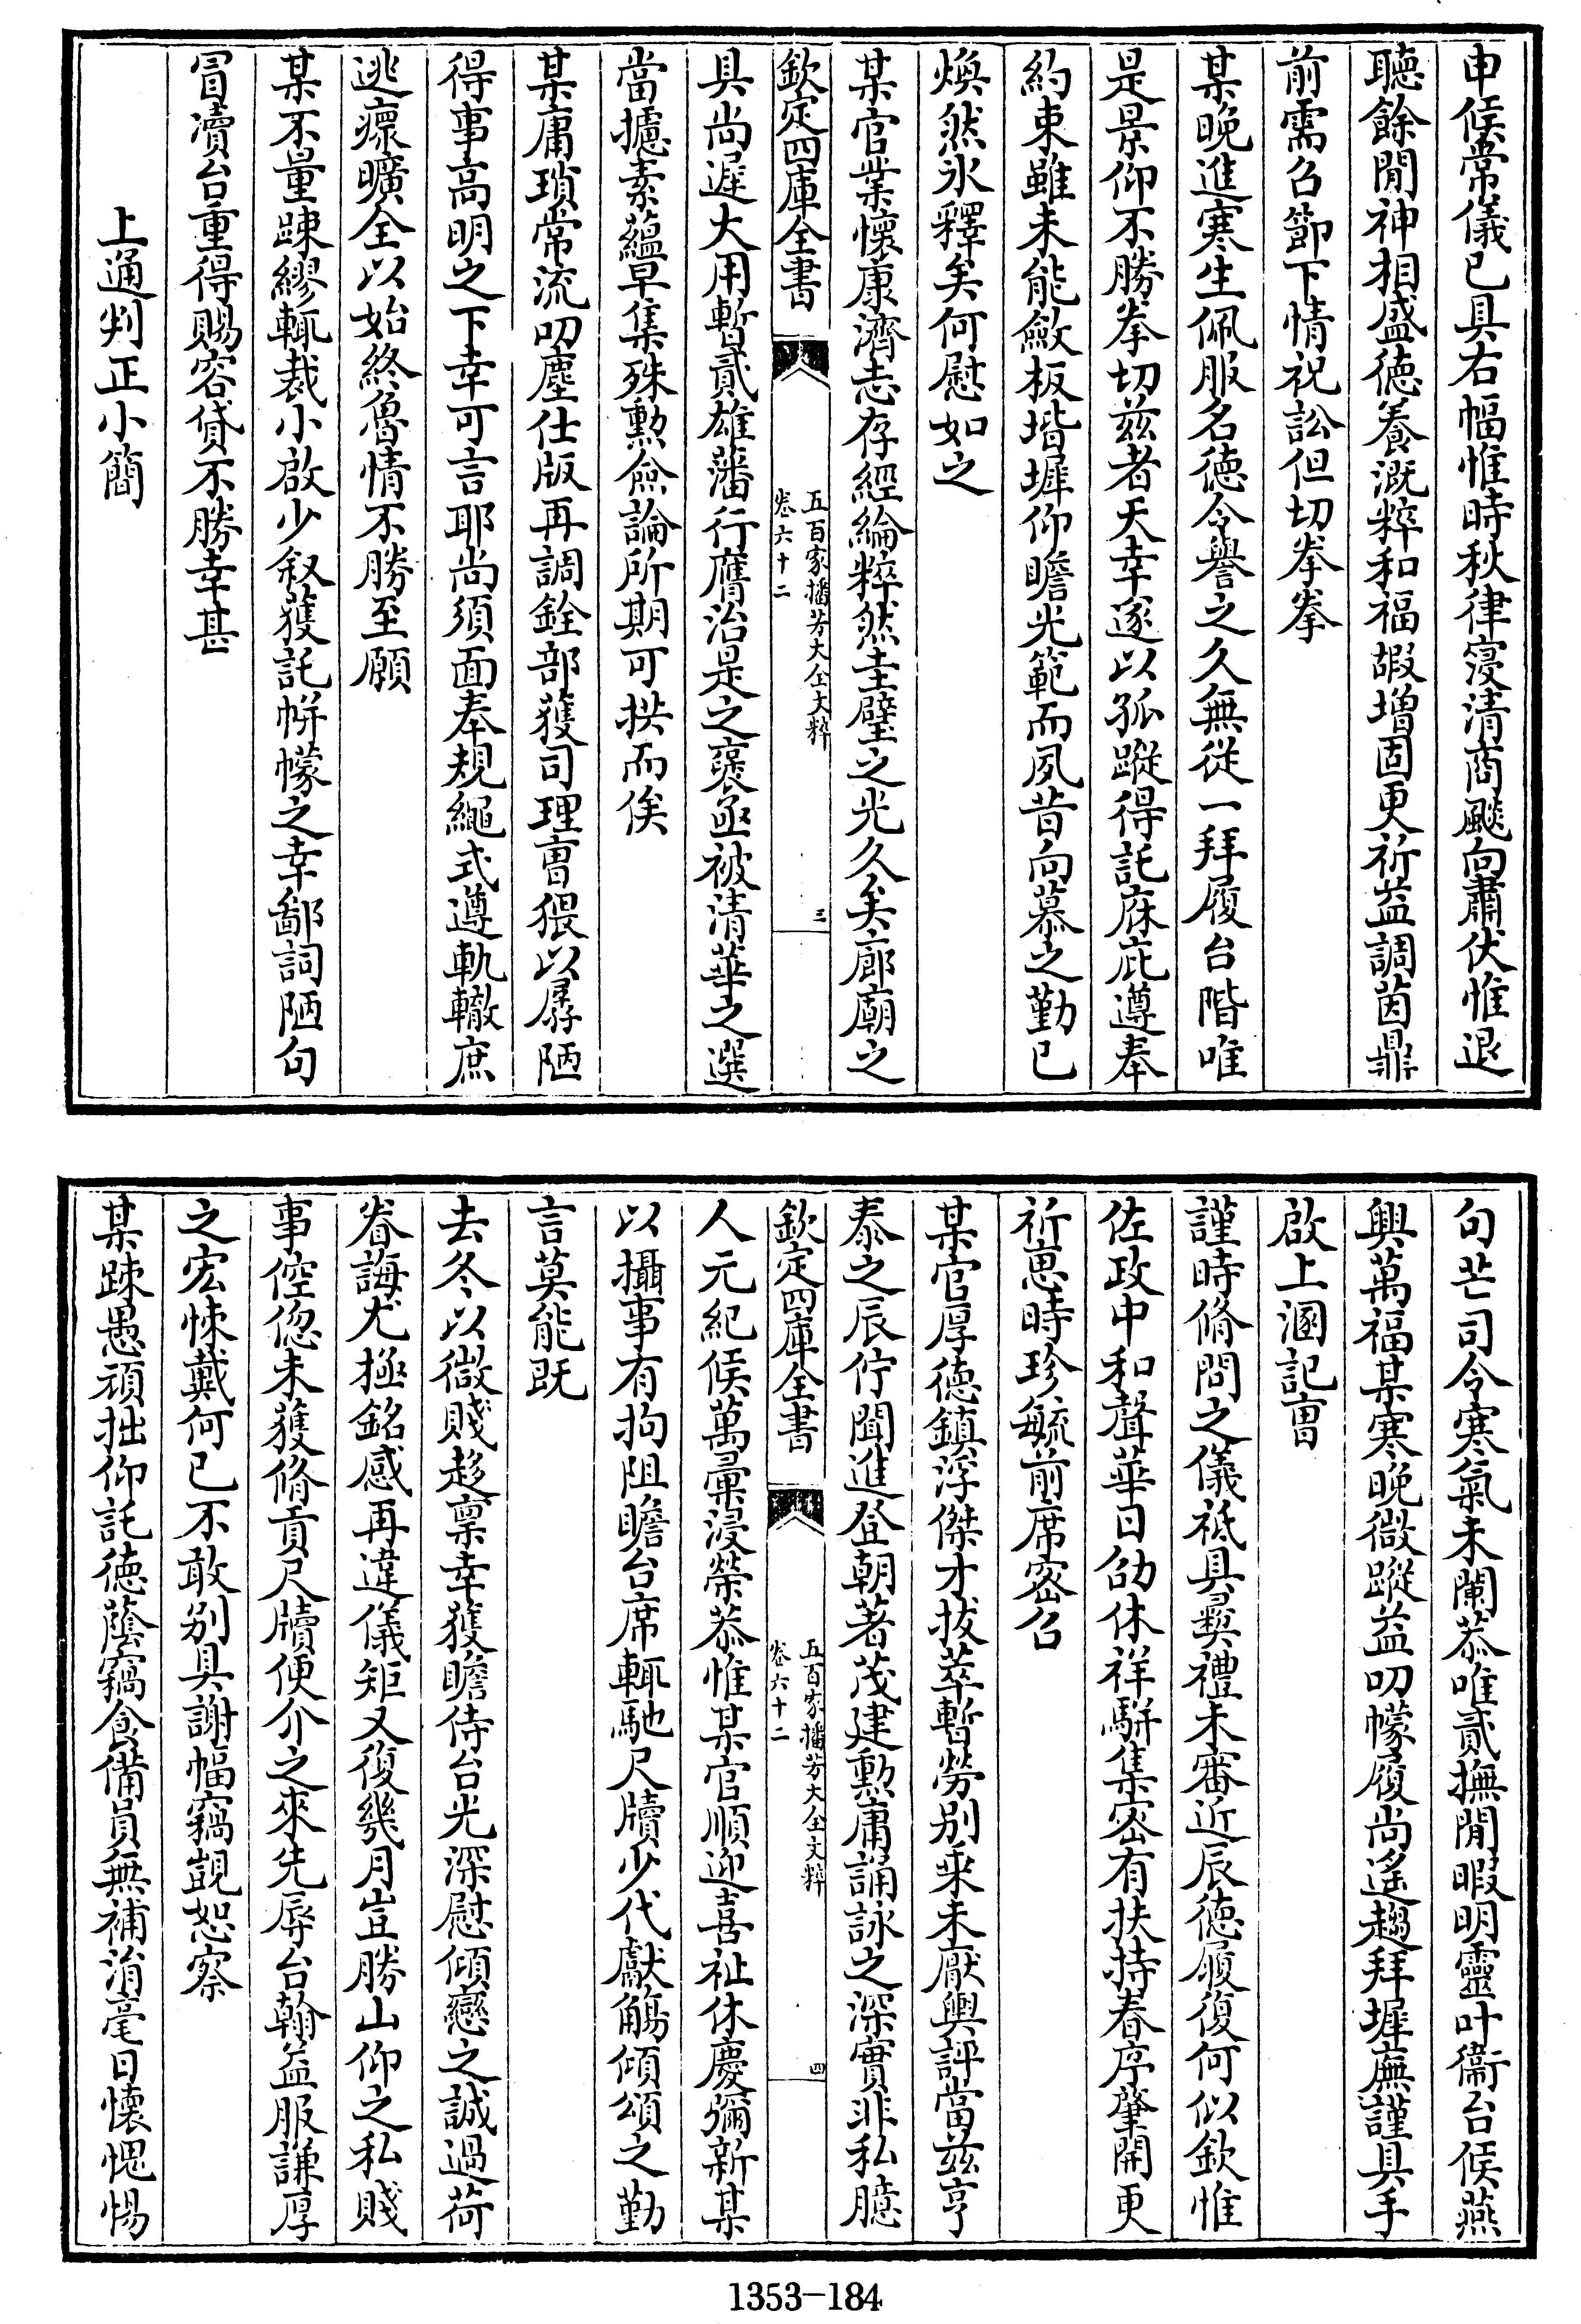 申候常儀已具右幅惟時秋律寖清商飈向肅伏惟退
聽餘閒神相盛徳養溉粹和福嘏增固更祈益調茵鼎
前需召節下情祝訟但切拳拳
某晚進寒生佩服名徳令譽之久無從一拜履台階唯
是景仰不勝拳切兹者天幸遂以孤蹤得託庥庇遵奉
約束雖未能斂板堦墀仰瞻光範而夙昔向慕之勤已
煥然氷釋矣何慰如之
某官業懷康濟志存經綸粹然圭璧之光久矣廊廟之
欽定四庫全書
五百家播芳大全文粹
卷六十二
三
具尚遲大用暫貳雄藩行膺治是之褒亟被清華之選
當攄素蘊早集殊勲僉論所期可拱而俟
某庸瑣常流叨塵仕版再調銓部獲司理㑹猥以孱陋
得事高明之下幸可言耶尚須面奉規繩式遵軌轍庶
逃瘝曠全以始終魯情不勝至願
某不量踈繆輒裁小啟少叙獲託帡幪之幸鄙詞陋句
冒瀆台重得賜容貸不勝幸甚
上通判正小簡
句芒司令寒氣未闌恭唯貳撫閒暇明靈叶衞台候燕
興萬福某寒晚微蹤益叨幪履尚遙趨拜墀廡謹具手
啟上溷記㑹
謹時脩問之儀祗具彛禮未審近辰徳履復何似欽惟
佐政中和聲華日劭休祥駢集宻有扶持春序肇開更
祈恵時珍毓前席宻召
某官厚徳鎮浮傑才拔萃暫勞别乘未厭輿評當兹亨
泰之辰佇聞進登朝著茂建勲庸誦詠之深實非私臆
欽定四庫全書
五百家播芳大全文粹
卷六十二
四
人元紀候萬彙浸榮恭惟某官順迎喜祉休慶彌新某
以攝事有拘阻瞻台席輒馳尺牘少代獻觴傾頌之勤
言莫能既
去冬以微賤趍稟幸獲瞻侍台光深慰傾戀之誠過荷
眷誨尤極銘感再違儀矩又復幾月豈勝山仰之私賤
事倥偬未獲脩貢尺牘便介之來先辱台翰益服謙厚
之宏悚戴何已不敢别具謝幅竊覬恕察
某踈愚頑拙仰託徳蔭竊食備員無補涓毫日懷愧惕
1353-184